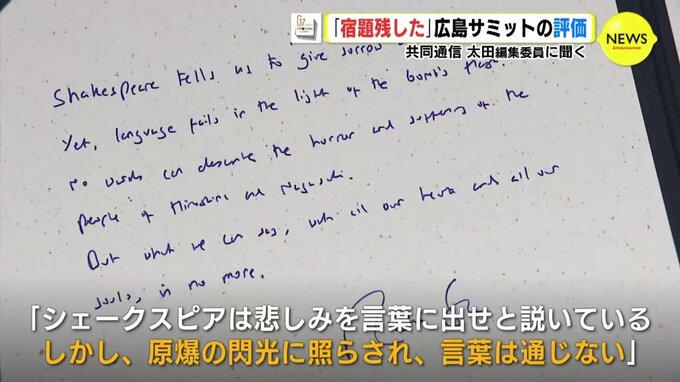 「宿題残した」広島サミットの評価
共同通信 太田編集委員に聞く
NEWS
Shakespeare tells us to give sorrow
Yet, language fails in the light of the bomb's flash.
No words can describe the horror and suffering of the
people of Hiroshima and Nagasaki.
But what we can say, with all our hearts and all our
souls, is no more.
「シェークスピアは悲しみを言葉に出せと説いている
しかし、原爆の閃光に照らされ、言葉は通じない」